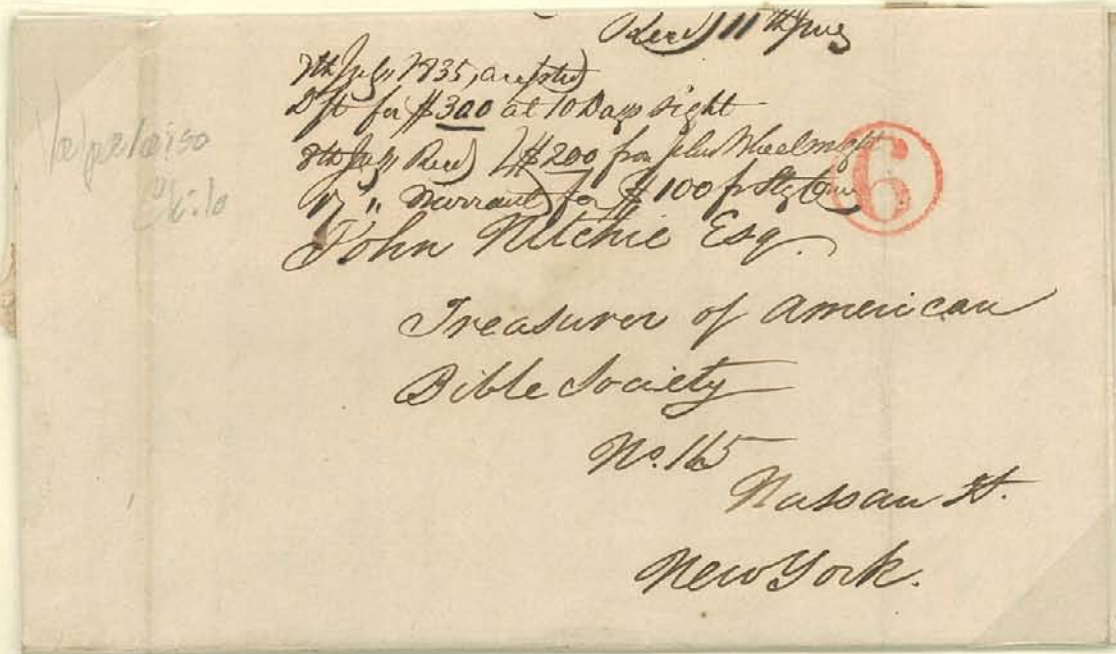 Recd 11th
7th July 1835, accepted
Dft for $300 at 10 Days sight
8th July Recd $200 from Wheelwright
17 " for $100
Valparaiso
Chile
6
John Nitchie Esq.
Treasurer of American
Bible Society
No. 115
Nassau St.
New York.